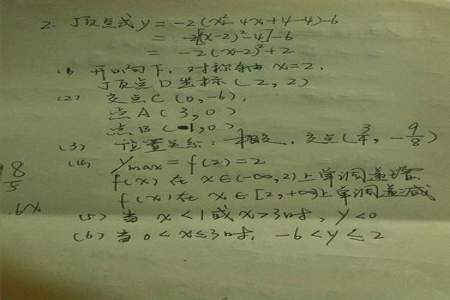 2. 顶点式 y = -2(x²-4x+4-4)-6
= -2[(x-2)²-4]-6
= -2(x-2)²+2
(1) 开口向下, 对称轴为 x=2.
顶点D坐标(2,2)
(2) 交点C(0,-6),
点A(3,0)
点B(1,0)
(3) 位置关系: 相交, 交点(3/4, -9/8)
(4) ymax = f(2) = 2
f(x) 在 x∈(-∞,2)上单调递增
f(x) 在 x∈[2,+∞)上单调递减
(5) 当 x<1或x>3时, y<0
(6) 当 0<x≤3时, -6<y≤2
8/5